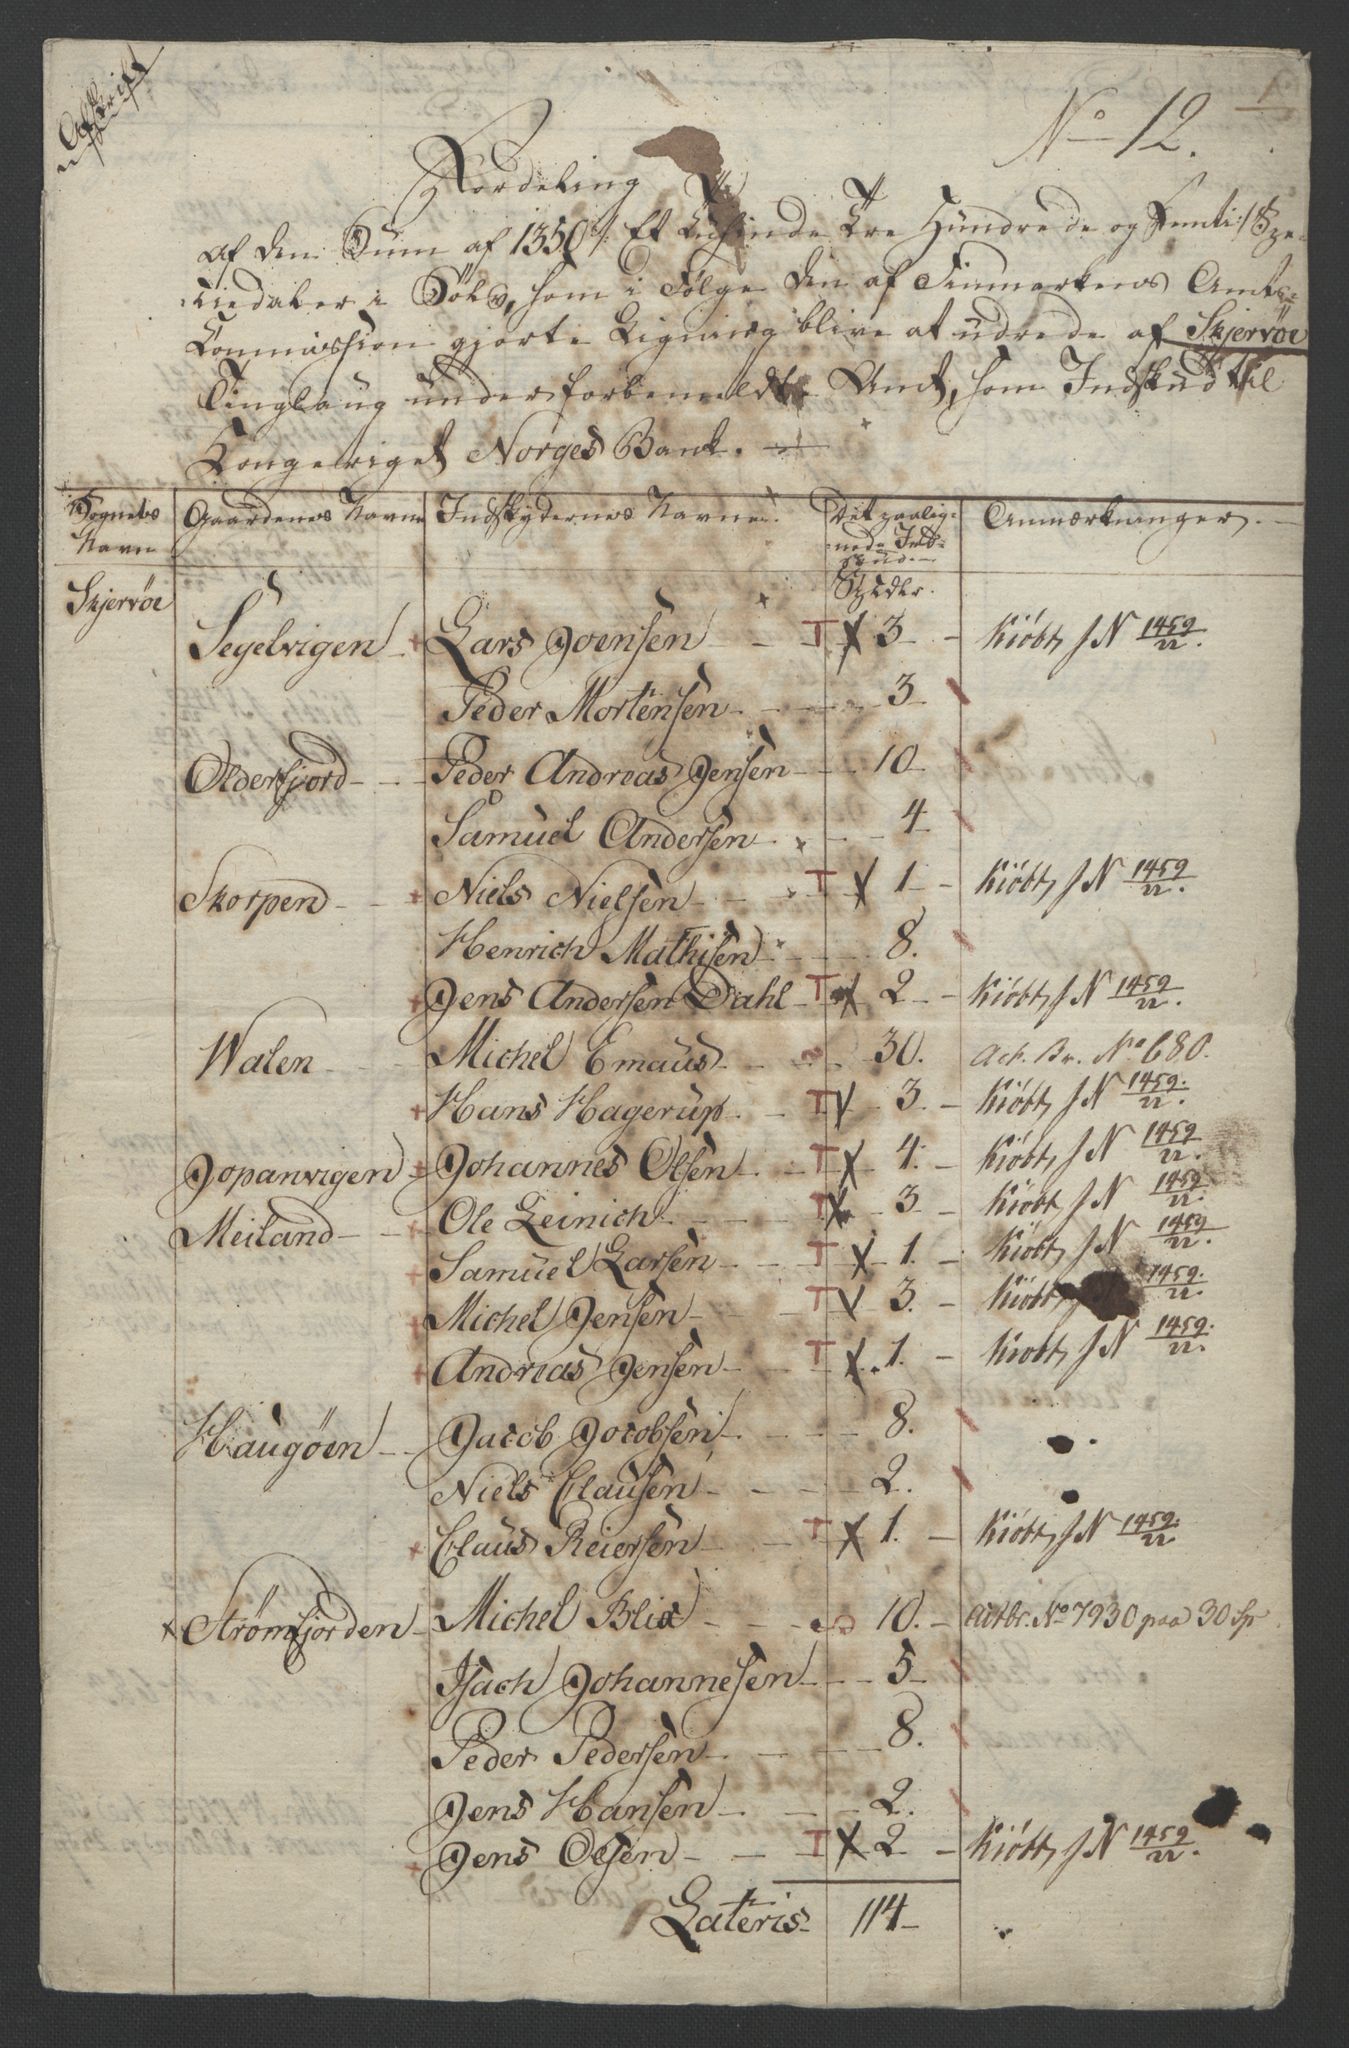 Afskrift
No 12.
1
Fordeling
af den Sum af 1350 /: Et Tusinde Tre Hundrede og Femti :/ Spe-
ciedaler i Sølv, som i Følge den af Finmarkens Amts-
Commission gjorte Ligning blive at udrede af Skjervöe
Tinglaug under forbemeldte Amt, som Indskud til
Kongeriget Norges Bank.
Sognets Navn | Gaardenes Navne | Indskydernes Navne. | Det paalig-nede Ind-skud. | Anmærkninger.
Spedlr.
Skjervöe
Segelvigen + Lars Joensen T X 3 Kiöbt, J N 1459/22.
Peder Mortensen 3
Olderfjord Peder Andreas Jensen 10
Samuel Andersen 4
Skorpen + Niels Nielsen T X 1 Kiöbt, J N 1459/22.
Henrich Mathisen 8.
+ Jens Andersen Dahl T X 2 Kiöbt, J N 1459/22.
Walen Michel Emaus 30. Act. Br. No 680.
+ Hans Hagerup T V 3. Kiöbt, J N 1459./22.
Jopanvigen + Johannes Olsen T X 4. Kiöbt, J N 1459/22.
Meiland + Ole Leinich T X 3 Kiöbt, J N 1459/22.
+ Samuel Larsen T X 1. Kiöbt, J N 1459/22.
+ Michel Jensen T V 3. Kiöbt, J N 1459./22.
+ Andreas Jensen T X 1. Kiöbt, J N 1459./22.
Haugöen Jacob Jacobsen 8.
Niels Clausen 2.
+ Claus Reiersen T X 1. Kiöbt, J N 1459./22.
x Strömfjorden Michel Blix 10. Actbr. No 7930 paa 30 Sp
Isach Johannesen 5
Peder Pedersen 8.
Jens Hansen 2.
+ Jens Olsen T X 2 Kiöbt, J N 1459/22.
Lateris 114